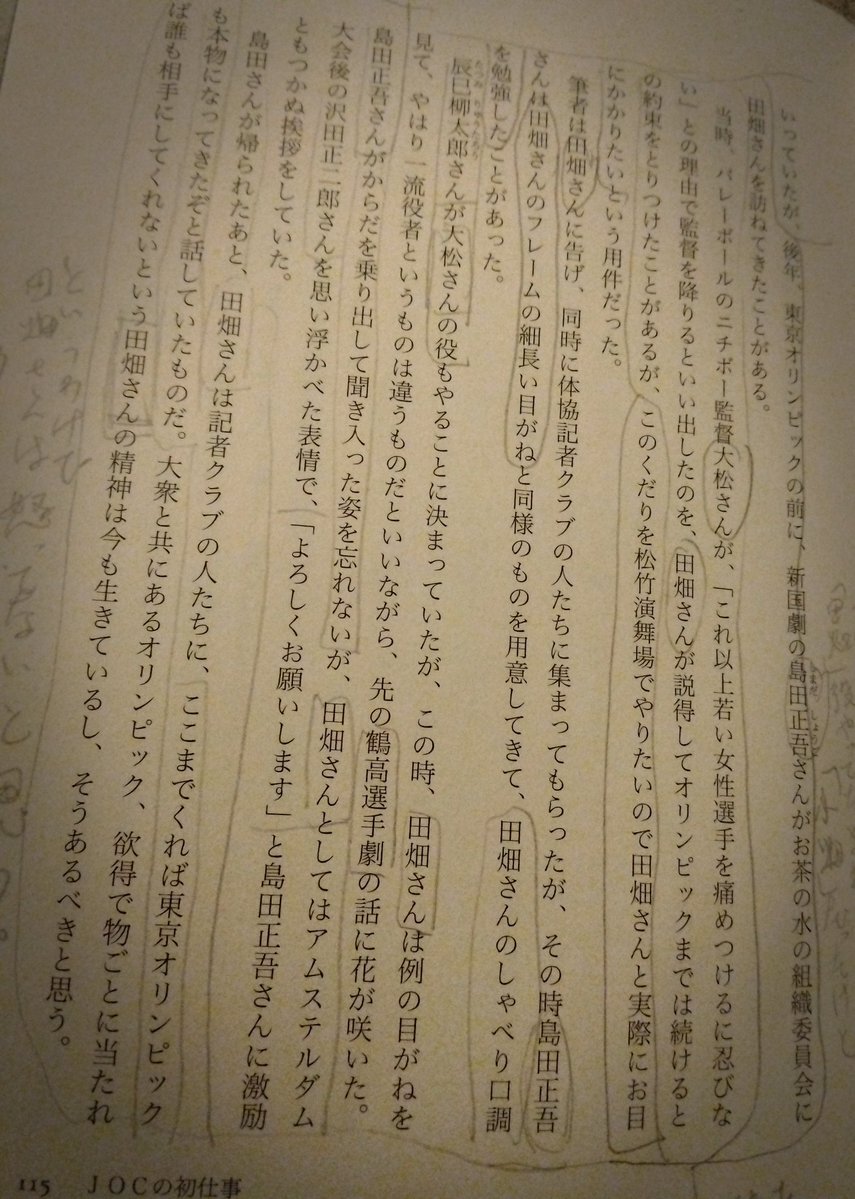 いっていたが、後年、東京オリンピックの前に、新国劇の島田正吾さんがお茶の水の組織委員会に
田畑さんを訪ねてきたことがある。
当時、バレーボールのニチボー監督大松さんが、「これ以上若い女性選手を痛めつけるに忍びな
い」との理由で監督を降りるといい出したのを、田畑さんが説得してオリンピックまでは続けると
の約束をとりつけたことがあるが、このくだりを松竹演舞場でやりたいので田畑さんと実際にお目
にかかりたいという用件だった。
筆者は田畑さんに告げ、同時に体協記者クラブの人たちに集まってもらったが、その時島田正吾
さんは田畑さんのフレームの細長い目がねと同様のものを用意してきて、田畑さんのしゃべり口調
を勉強したことがあった。
辰巳柳太郎さんが大松さんの役もやることに決まっていたが、この時、田畑さんは例の目がねを
見て、やはり一流役者というものは違うものだといいながら、先の鶴高選手劇の話に花が咲いた。
島田正吾さんがからだを乗り出して聞き入った姿を忘れないが、田畑さんとしてはアムステルダム
大会後の沢田正二郎さんを思い浮かべた表情で、「よろしくお願いします」と島田正吾さんに激励
ともつかぬ挨拶をしていた。
島田さんが帰られたあと、田畑さんは記者クラブの人たちに、ここまでくれば東京オリンピック
も本物になってきたぞと話していたものだ。大衆と共にあるオリンピック、欲得で物ごとに当たれ
ば誰も相手にしてくれないという田畑さんの精神は今も生きているし、そうあるべきと思う。
115 JOCの初仕事